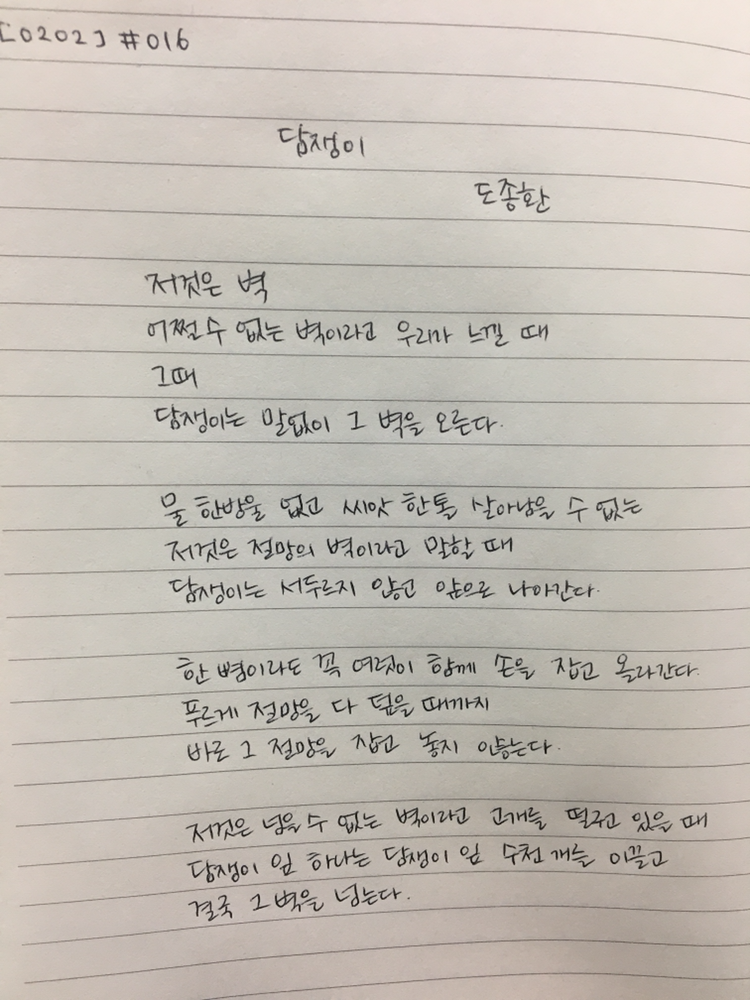 [0202] #016
담쟁이
도종환
저것은 벽
어쩔 수 없는 벽이라고 우리가 느낄 때
그때
담쟁이는 말없이 그 벽을 오른다.
물 한방울 없고 씨앗 한톨 살아남을 수 없는
저것은 절망의 벽이라고 말할 때
담쟁이는 서두르지 않고 앞으로 나아간다.
한 뼘이라도 꼭 여럿이 함께 손을 잡고 올라간다.
푸르게 절망을 다 덮을 때까지
바로 그 절망을 잡고 놓지 않는다.
저것은 넘을 수 없는 벽이라고 고개를 떨구고 있을 때
담쟁이 잎 하나는 담쟁이 잎 수천 개를 이끌고
결국 그 벽을 넘는다.